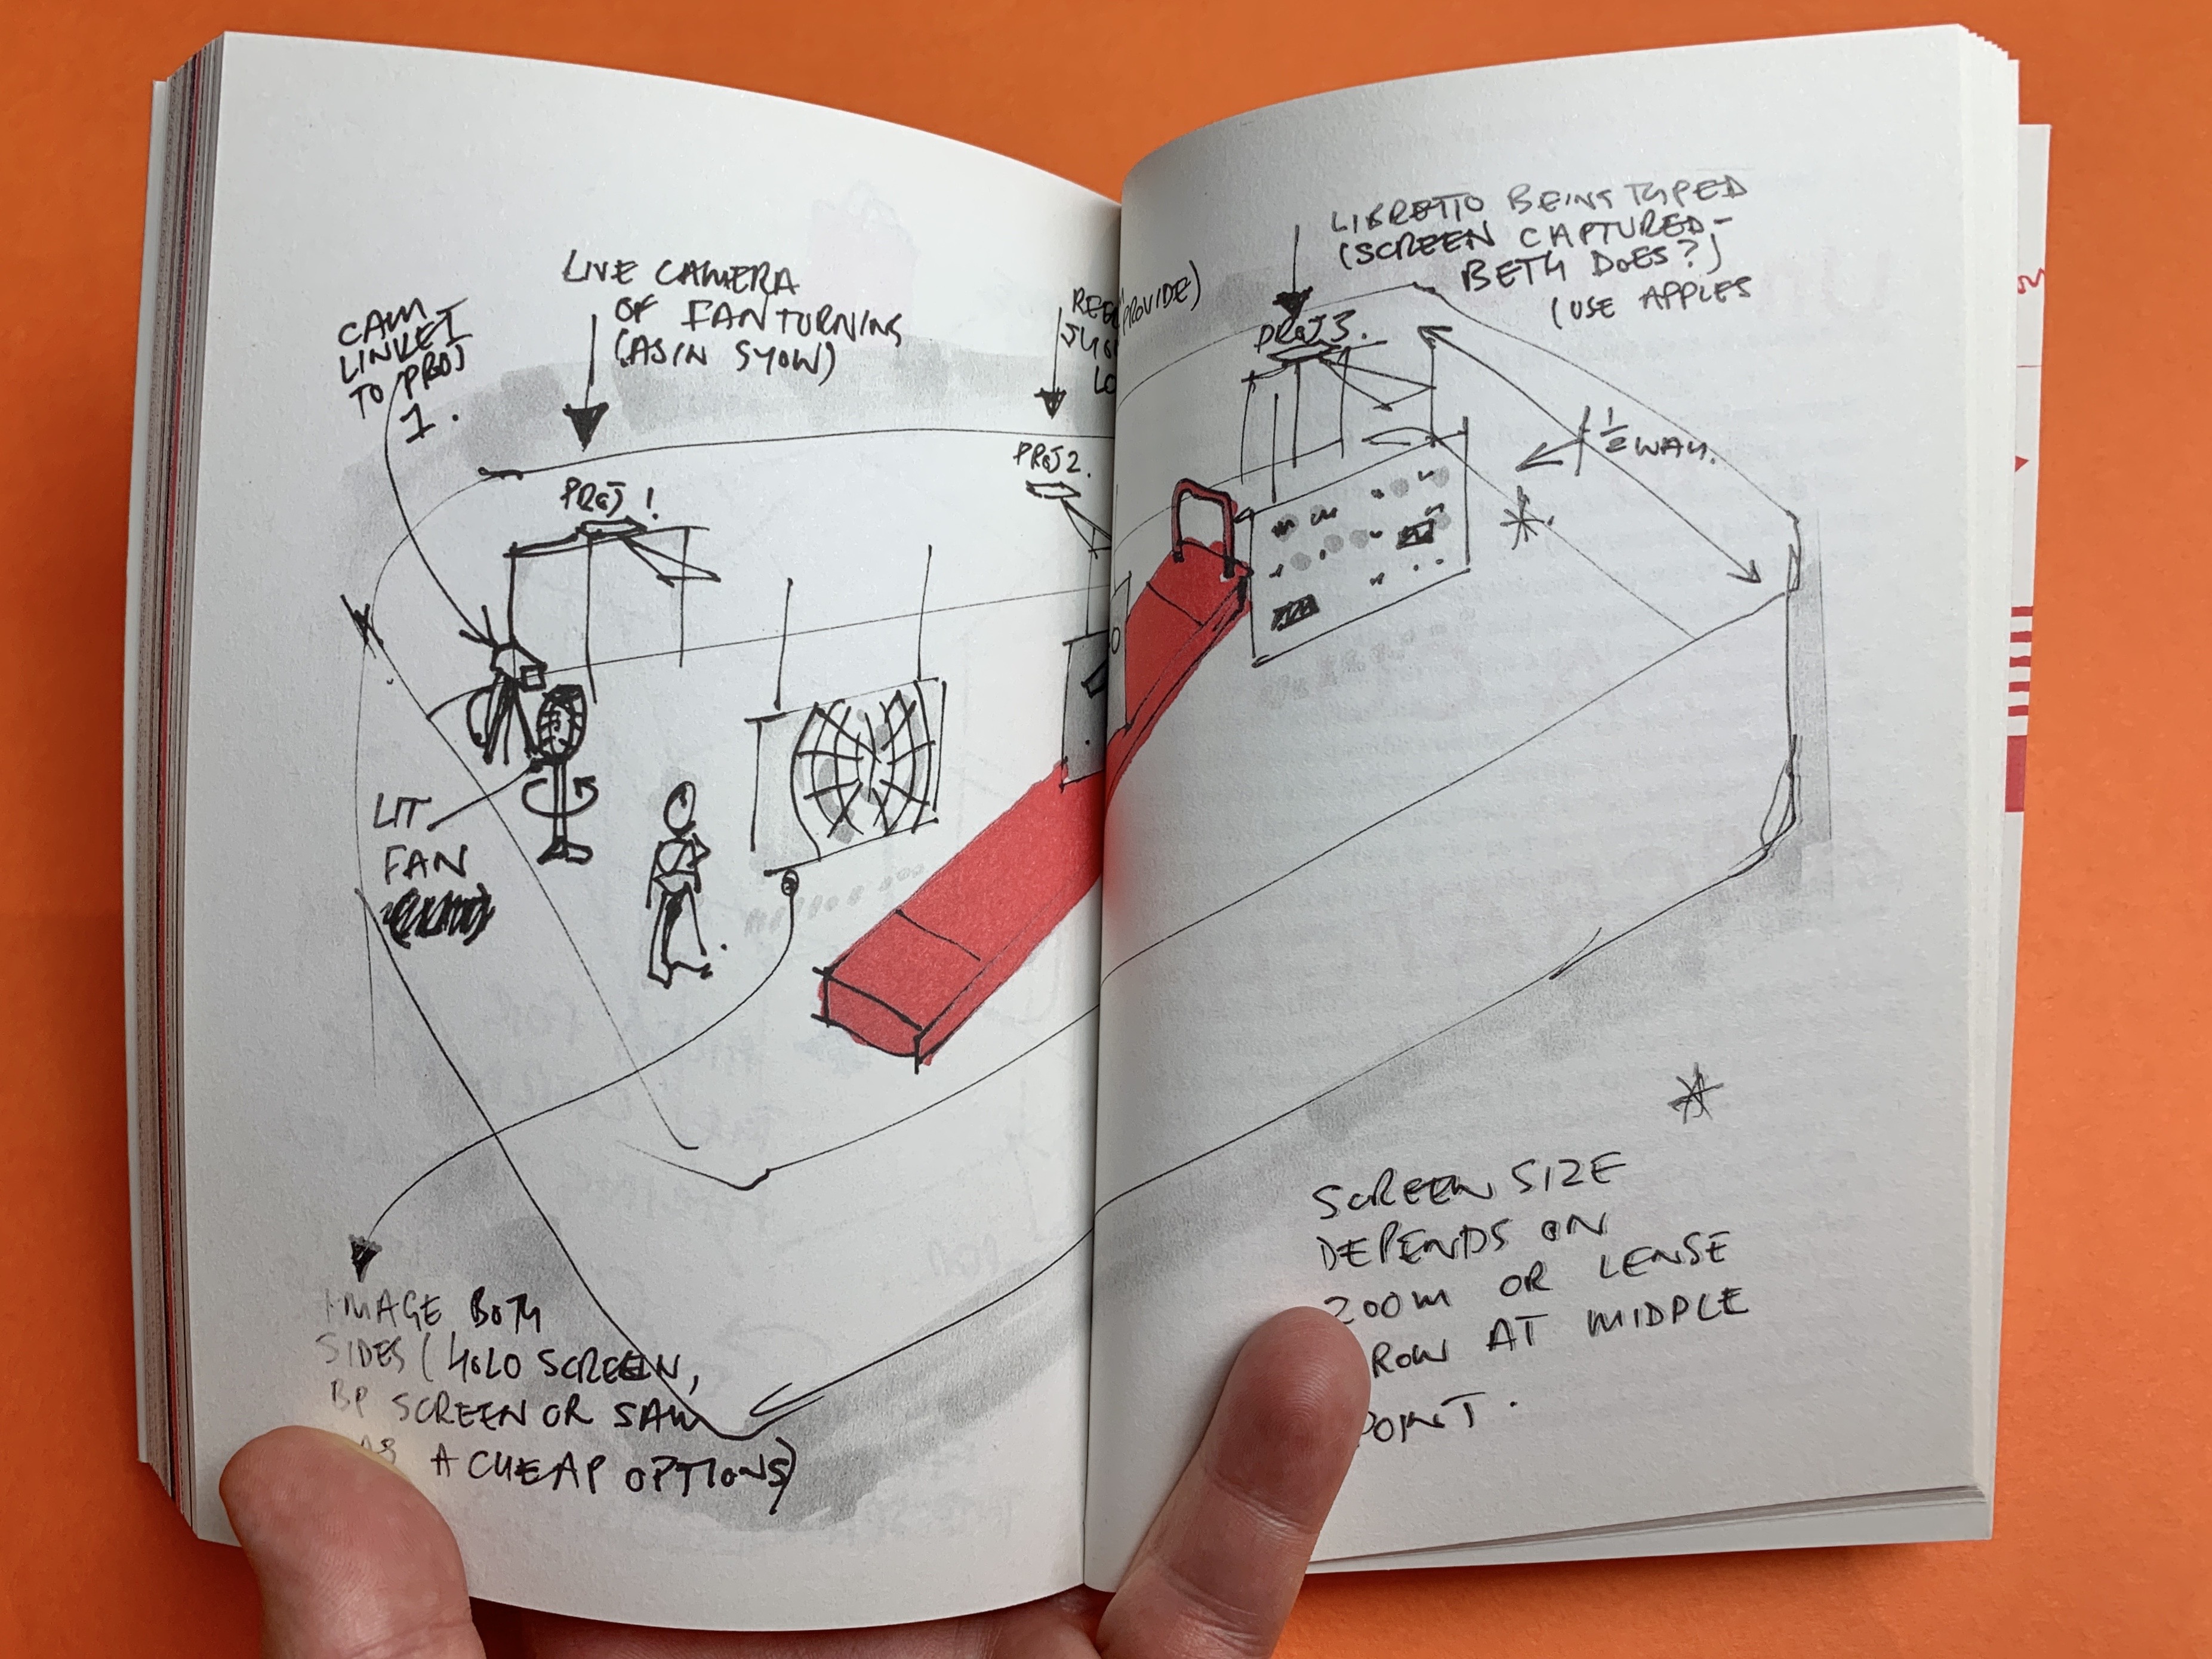 CAM
LINKET
TO PROJ
1.
LIVE CAMERA
OF FAN TURNING
(AS IN SHOW)
PROJ 1
PROVIDE)
PROJ 2.
LIT
FAN
IMAGE BOTH
SIDES (HOLO SCREEN,
BP SCREEN OR SAW
AS A CHEAP OPTIONS)
LIBRETTO BEING TYPED
(SCREEN CAPTURED-
BETH DOES?)
(USE APPLES
PROJ 3.
1/2 WAY.
*.
*
SCREEN SIZE
DEPENDS ON
ZOOM OR LENSE
ROW AT MIDPLE
POINT.